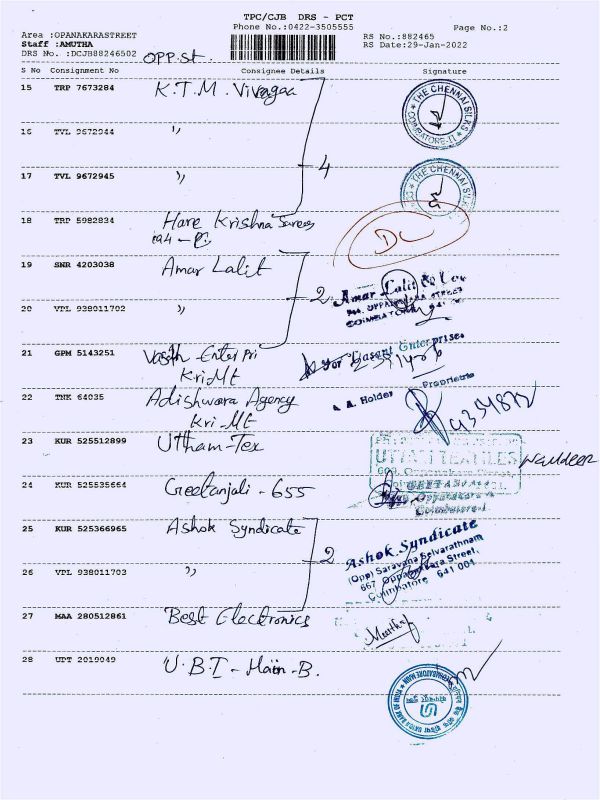 TPC/CJB DRS - PCT
Phone No.:0422-3505555
Page No.:2
Area :OPANAKARASTREET
RS No.:882465
Staff :AMUTHA
RS Date:29-Jan-2022
DRS No. :DCJB88246502
OPP.st.
S No Consignment No Consignee Details Signature
15 TRP 7673284 K.T.M. Vivagaa
THE CHENNAI SILKS
COIMBATORE-11
16 TVL 9672944 〃
17 TVL 9672945 〃
4
THE CHENNAI SILKS
18 TRP 5982834 Hare Krishna Sarees
DC
19 SNR 4203038 Amar Lalit
2
Amar Lalit & Co
OPPANAKARA STREET
COIMBATORE 641 001
20 VPL 938011702 〃
21 GPM 5143251 Vasanth Enterpri
Kri.Mt
For Vasant Enterprises
Proprietrix
22 TNK 64035 Adishwara Agency
Kri-Mt
A. Holder
9354872
23 KUR 525512899 Uttham-Tex
UTTAM TEXTILES
24 KUR 525535664 Geetanjali - 655
Coimbatore-1
25 KUR 525366965 Ashok Syndicate
2
Ashok Syndicate
(Opp) Saravana Selvarathnam
667 Oppanakara Street,
Coimbatore 641 001
26 VPL 938011703 〃
27 MAA 280512861 Best Electronics
28 UPT 2019049 U.B.I - Main-B.